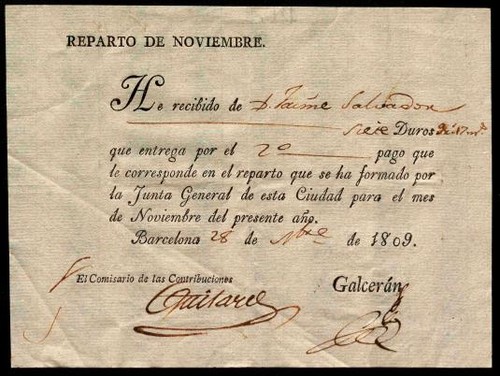 REPARTO DE NOVIEMBRE.
He recibido de D. Jaime Salvador
siete Duros
que entrega por el 2º pago que
le corresponde en el reparto que se ha formado por
la Junta General de esta Ciudad para el mes
de Noviembre del presente año.
Barcelona 28 de Nbre de 1809.
El Comisario de las Contribuciones
Galcerán